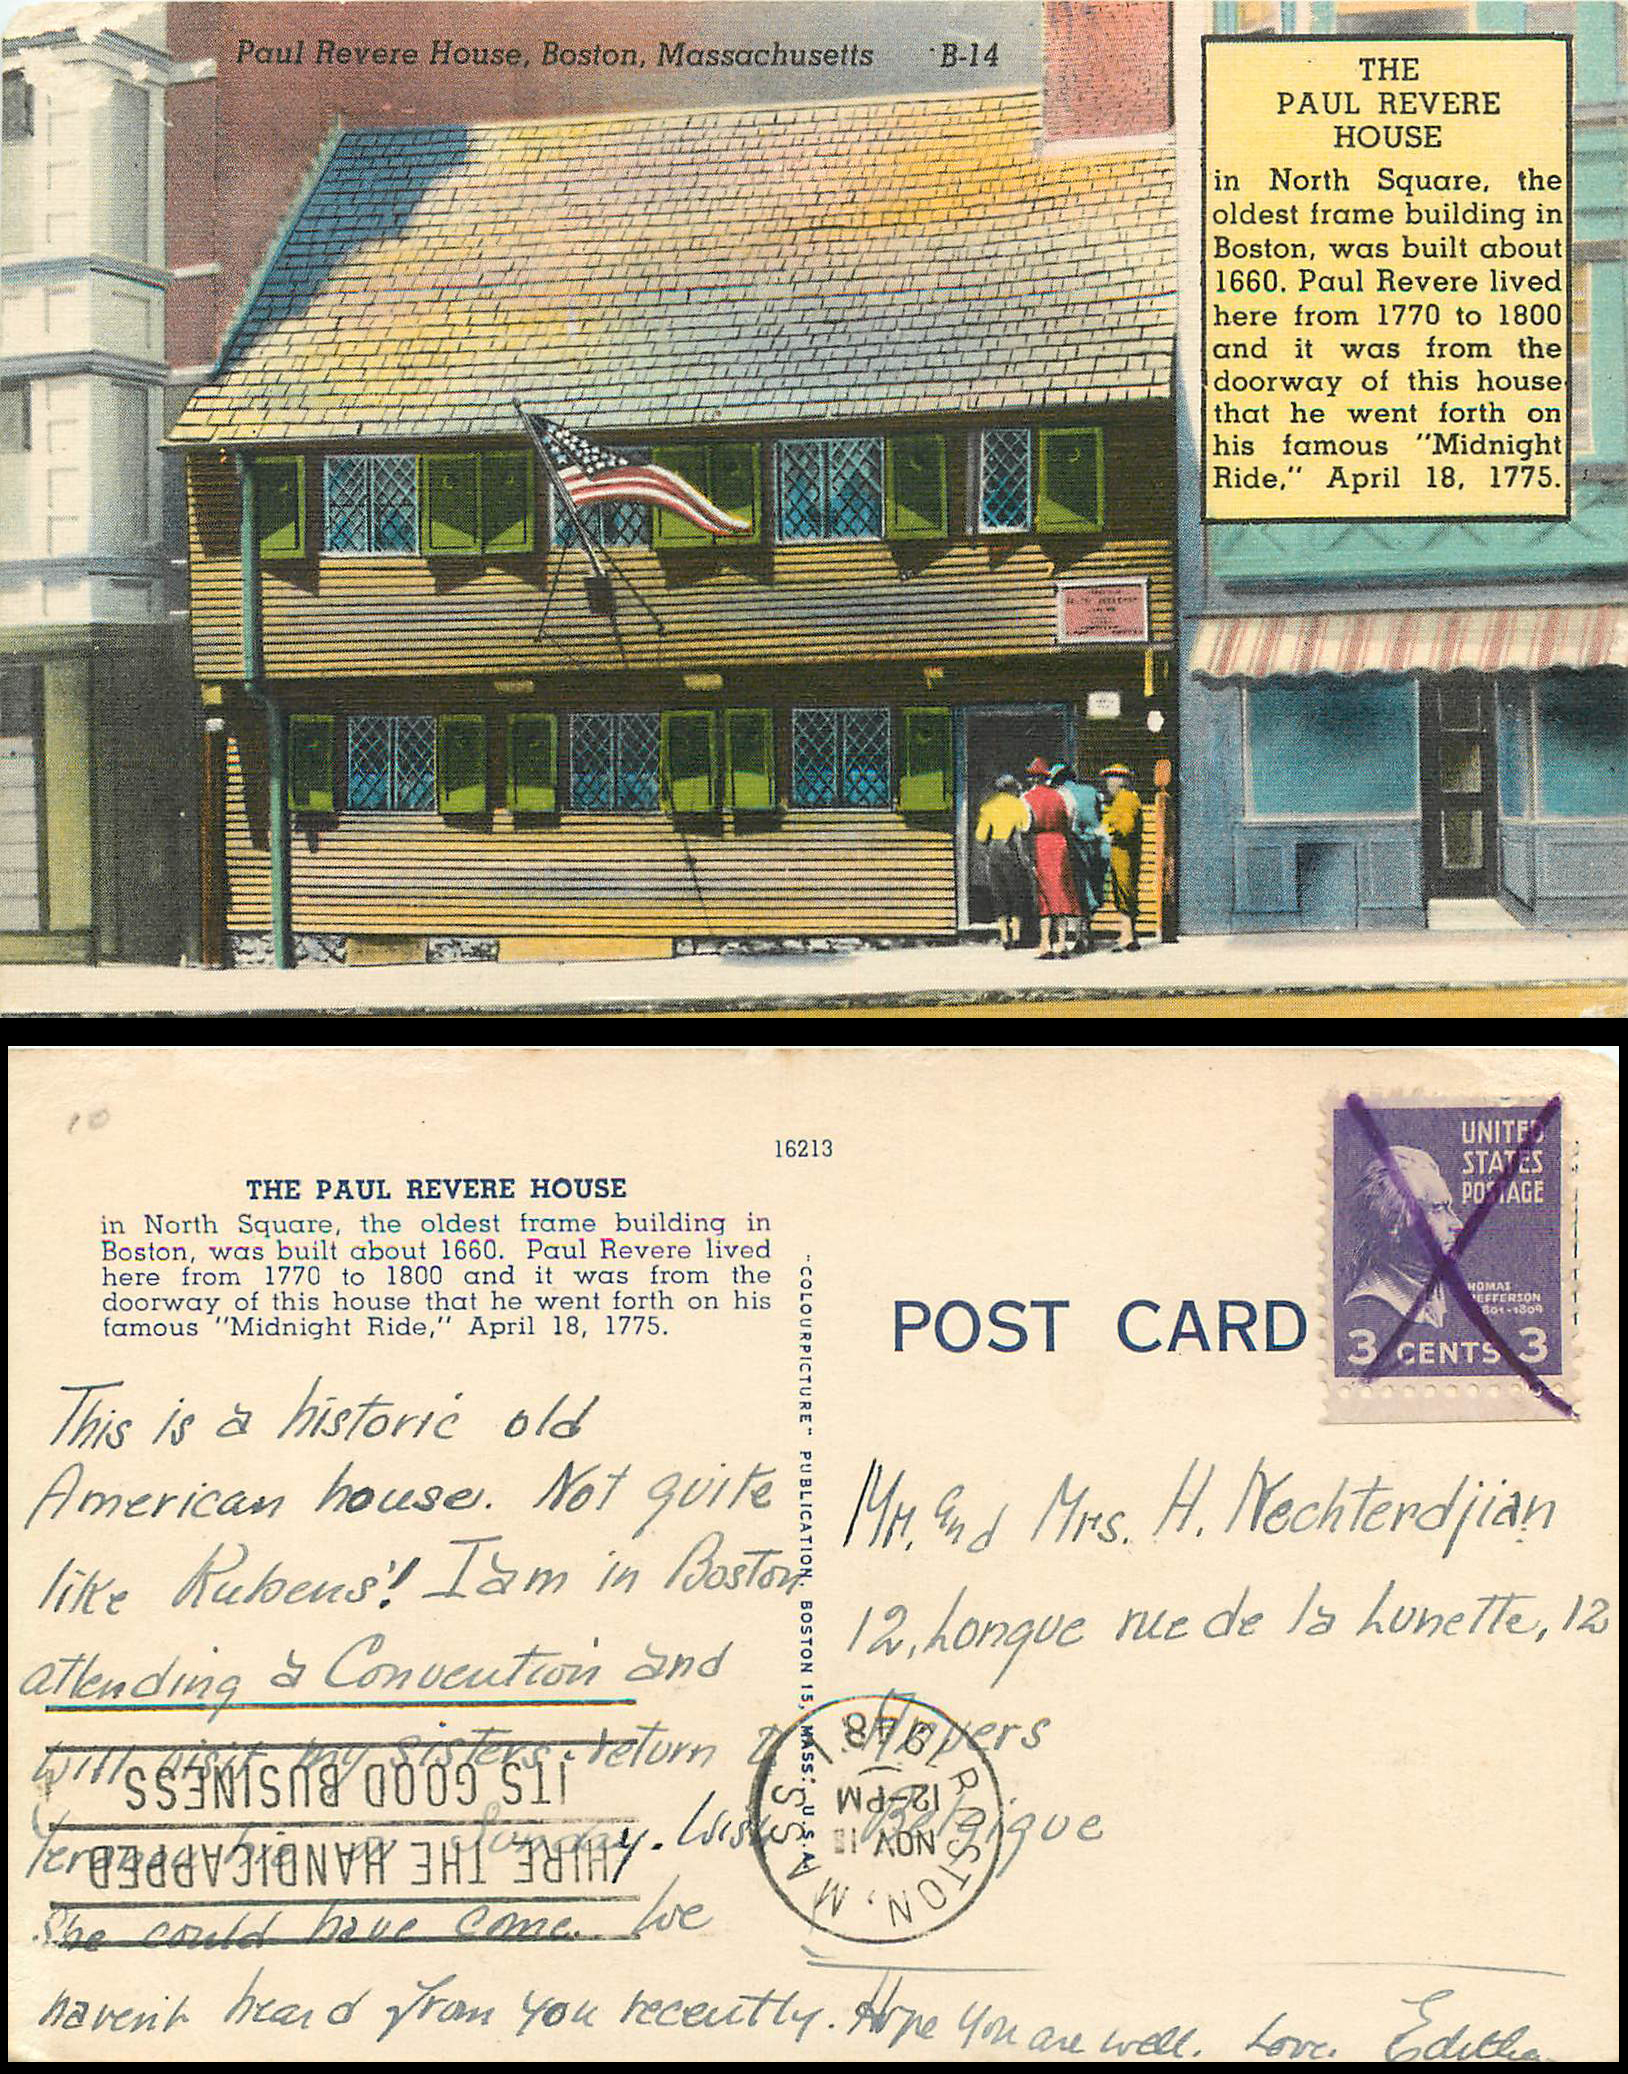 Paul Revere House, Boston, Massachusetts B-14
THE
PAUL REVERE
HOUSE
in North Square, the
oldest frame building in
Boston, was built about
1660. Paul Revere lived
here from 1770 to 1800
and it was from the
doorway of this house
that he went forth on
his famous "Midnight
Ride," April 18, 1775.
10
16213
THE PAUL REVERE HOUSE
in North Square, the oldest frame building in
Boston, was built about 1660. Paul Revere lived
here from 1770 to 1800 and it was from the
doorway of this house that he went forth on his
famous "Midnight Ride," April 18, 1775.
This is a historic old
American house. Not quite
like Rubens'! I am in Boston
attending a Convention and
will visit my sisters. return to
on Sunday. Wish
She could have come. We
haven't heard from you recently. Hope you are well. Love. Editha
"COLOURPICTURE" PUBLICATION, BOSTON 15, MASS., U.S.A.
POST CARD
UNITED
STATES
POSTAGE
THOMAS
JEFFERSON
1801-1809
3 CENTS 3
Mr. and Mrs. H. Nechterdjian
12, Longue rue de la Lunette, 12
Anvers
Belgique
BOSTON, MASS.
NOV
12-PM
1948
HIRE THE HANDICAPPED
ITS GOOD BUSINESS